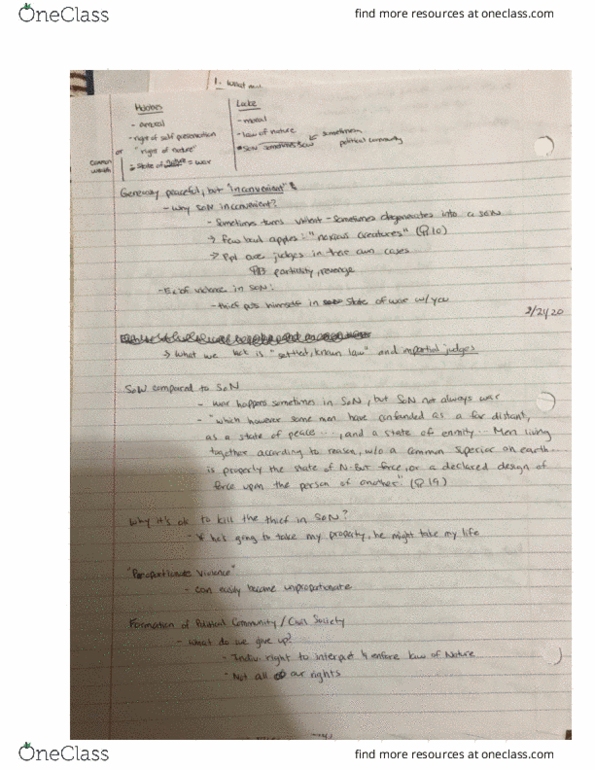 OneClass
find more resources at oneclass.com
1. What
Hobbes
Locke
- amoral
- moral
- right of self preservation
- law of nature
sometimes
or "right of nature"
political community
State of nature = war
Generally peaceful, but "inconvenient"
- Why SON inconvenient?
- Sometimes turns violent - sometimes degenerates into a SOW
→ Few bad apples: "noxious creatures" (P.10)
→ Ppl are judges in their own cases
partiality, revenge
- Ex of violence in SON:
- thief puts himself in state of war w/ you
2/24/20
→ What we lack is "settled, known law" and impartial judges
SOW compared to SON
- War happens sometimes in SON, but SON not always war
- "which however some men have confounded as a far distant,
as a state of peace ..., and a state of enmity... Men living
together according to reason, w/o a common superior on earth...
is properly the state of N. But force, or a declared design of
force upon the person of another" (P.19)
Why it's ok to kill the thief in SON?
- If he's going to take my property, he might take my life
"Proportionate Violence"
- can easily become unproportionate
Formation of Political Community / Civil Society
- What do we give up?
- Indiv right to interpret & enforce law of Nature
- Not all our rights
OneClass
find more resources at oneclass.com